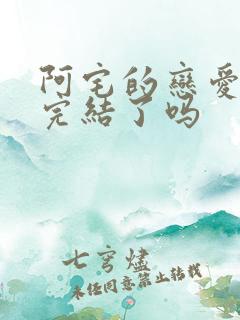 阿宅的戀愛
完結了吗
七穹燼
未任同意禁止转载